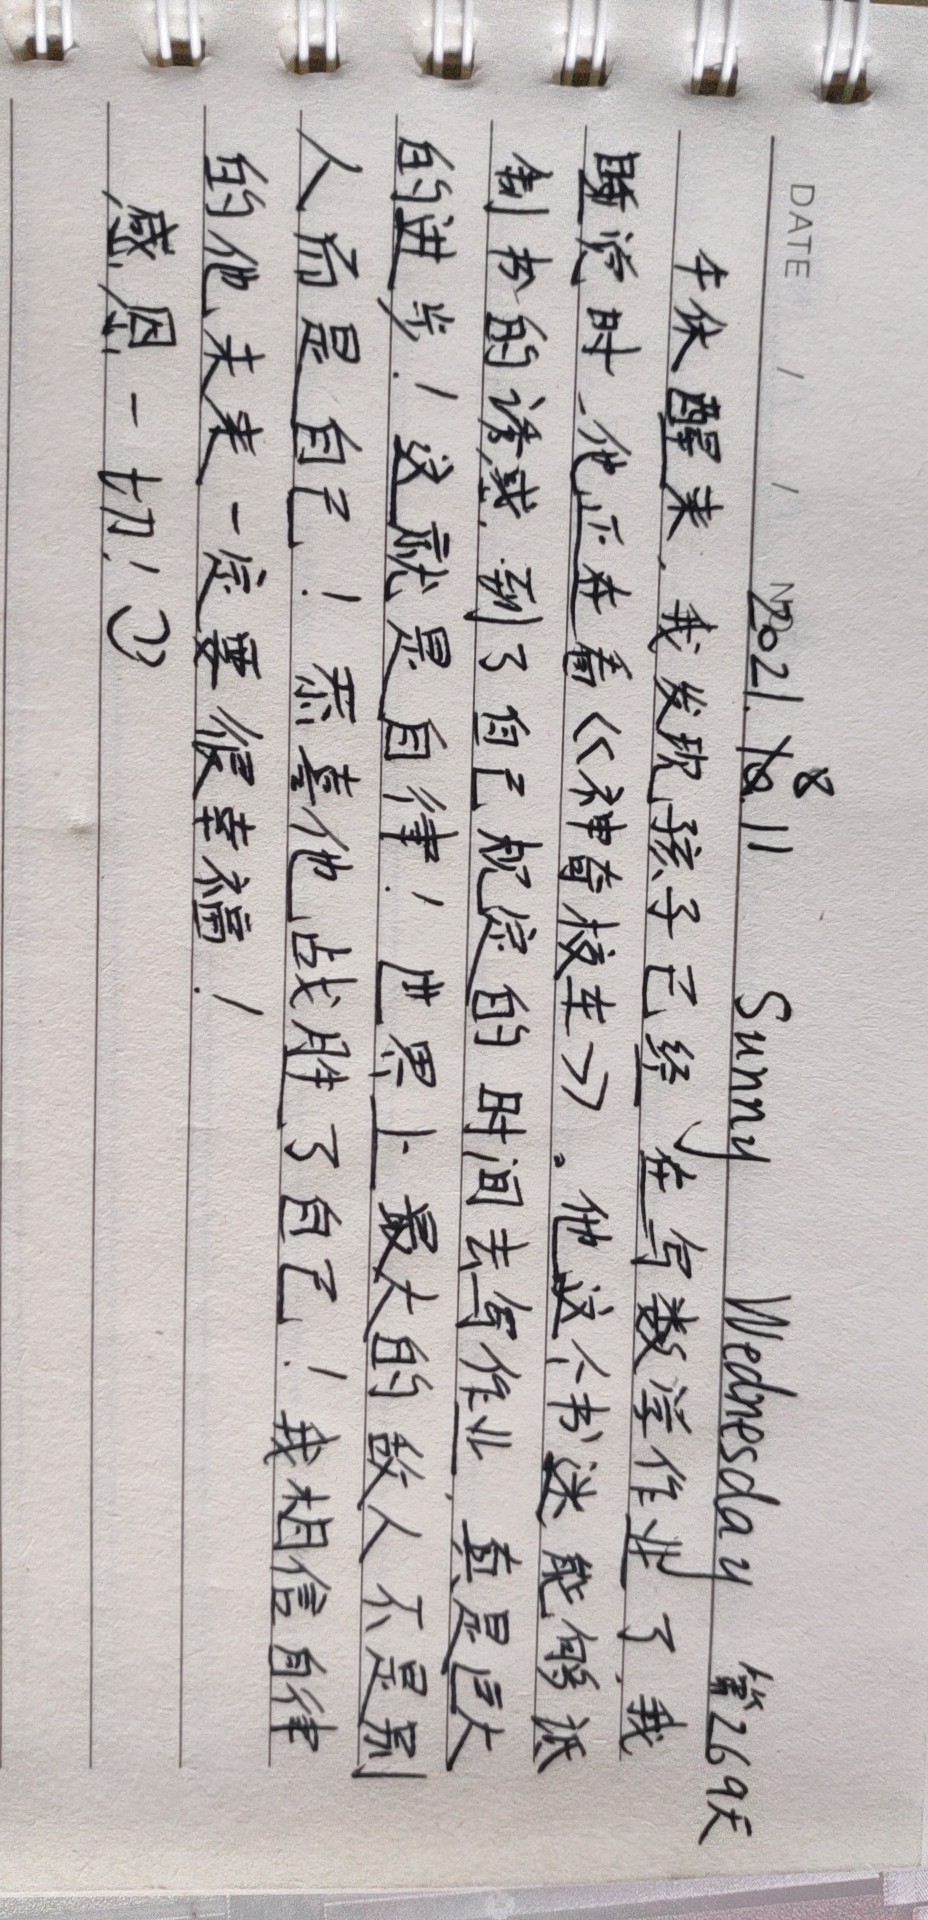 DATE / /
2021.8.11 Sunny Wednesday 第269天
午休醒来,我发现孩子已经在写数学作业了,我
睡觉时,他正在看《神奇校车》。他这个书迷能够抵
制书的诱惑,到了自己规定的时间去写作业,真是巨大
的进步!这就是自律!世界上最大的敌人不是别
人而是自己!恭喜他战胜了自己!我相信自律
的他未来一定要很幸福!
感恩一切!